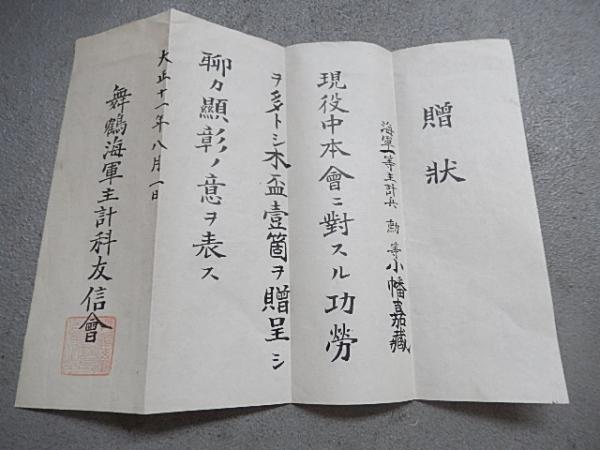 贈状
海軍一等主計兵 勲 等 小幡嘉藏
現役中本會ニ對スル功勞
ヲ多トシ木盃壹箇ヲ贈呈シ
聊カ顯彰ノ意ヲ表ス
大正十一年八月一日
舞鶴海軍主計科友信會